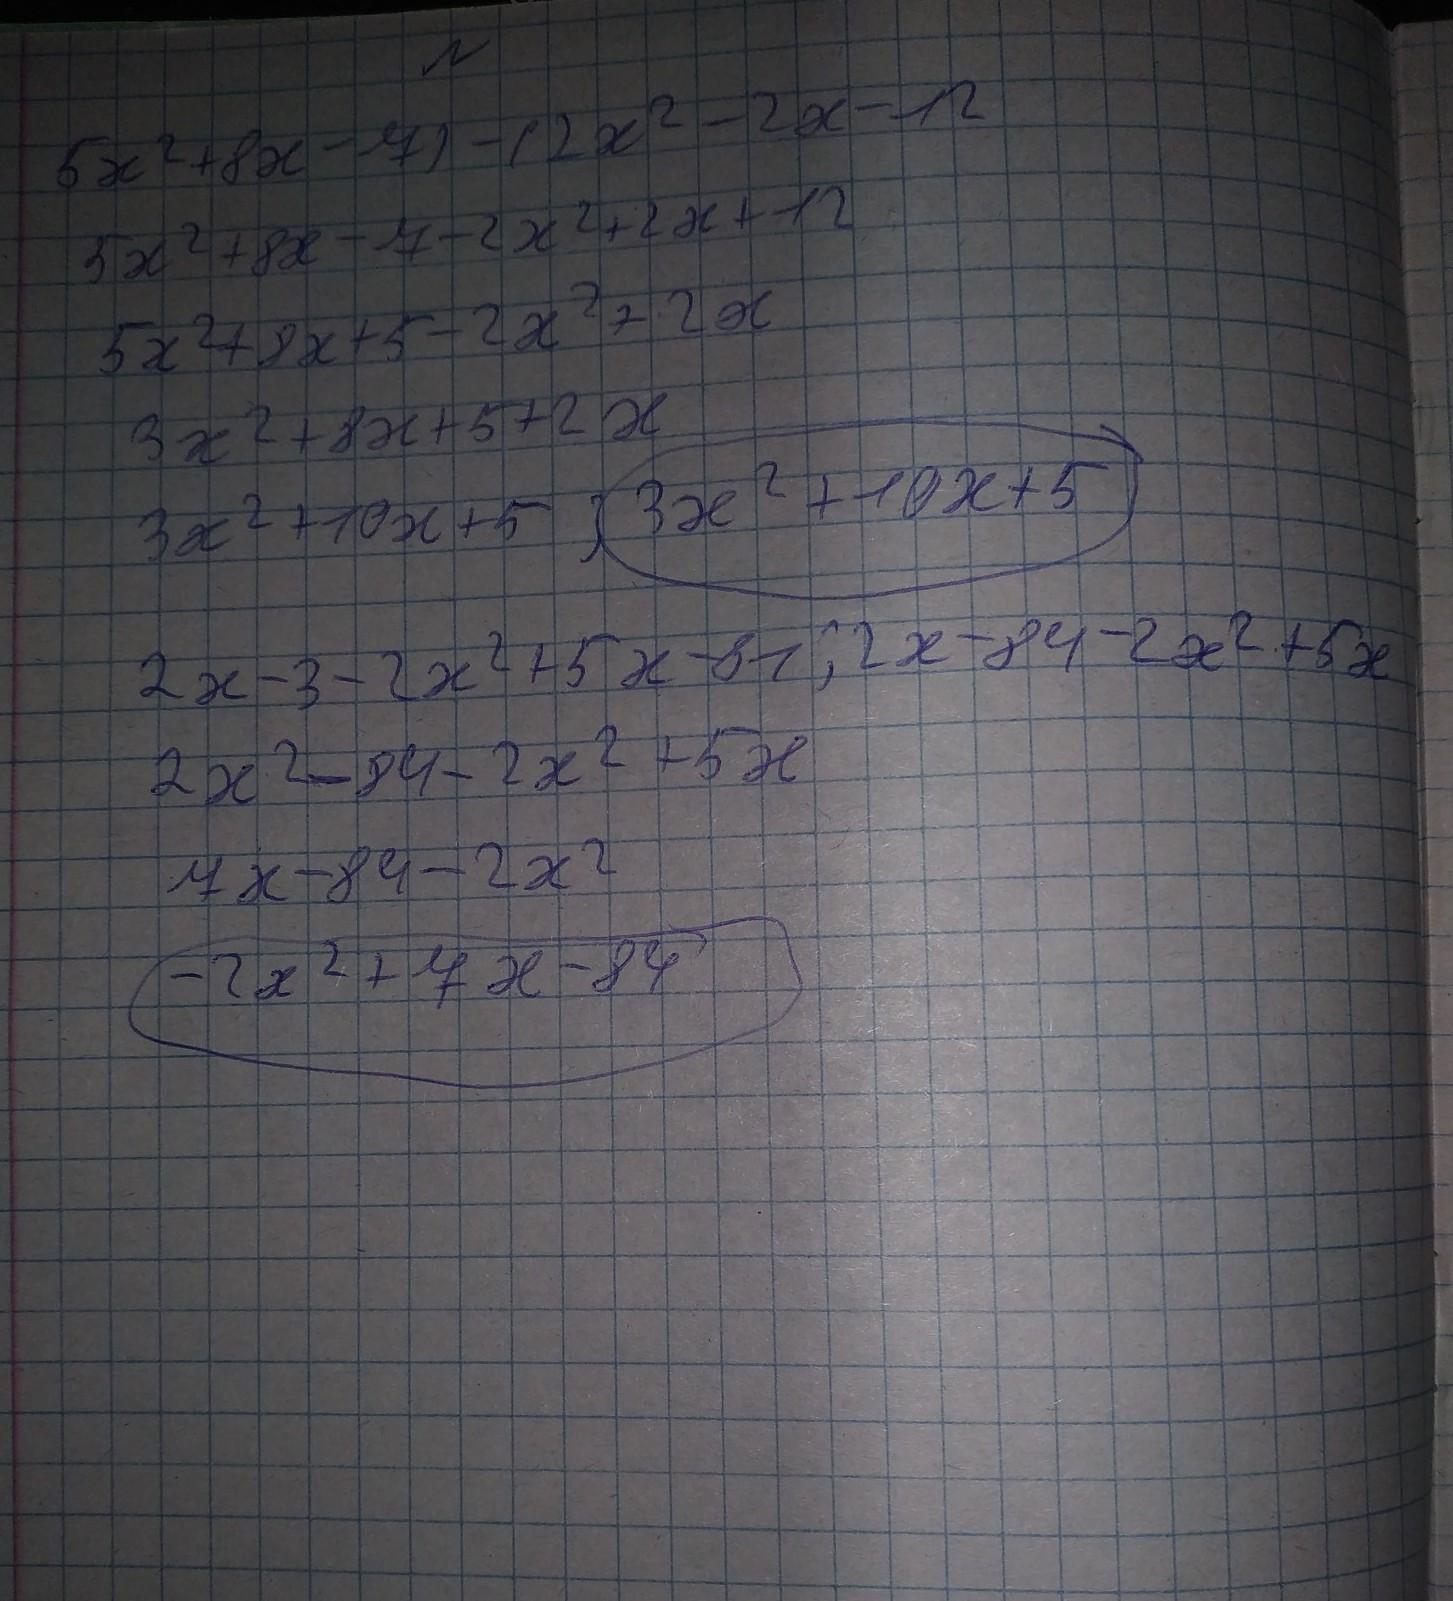 N
5x²+8x-7)-(2x²-2x-12
5x²+8x-7-2x²+2x+12
5x²+8x+5-2x²+2x
3x²+8x+5+2x
3x²+10x+5 ; 3x²+10x+5
2x-3-2x²+5x-81; 2x-84-2x²+5x
2x²-84-2x²+5x
7x-84-2x²
-2x²+7x-84